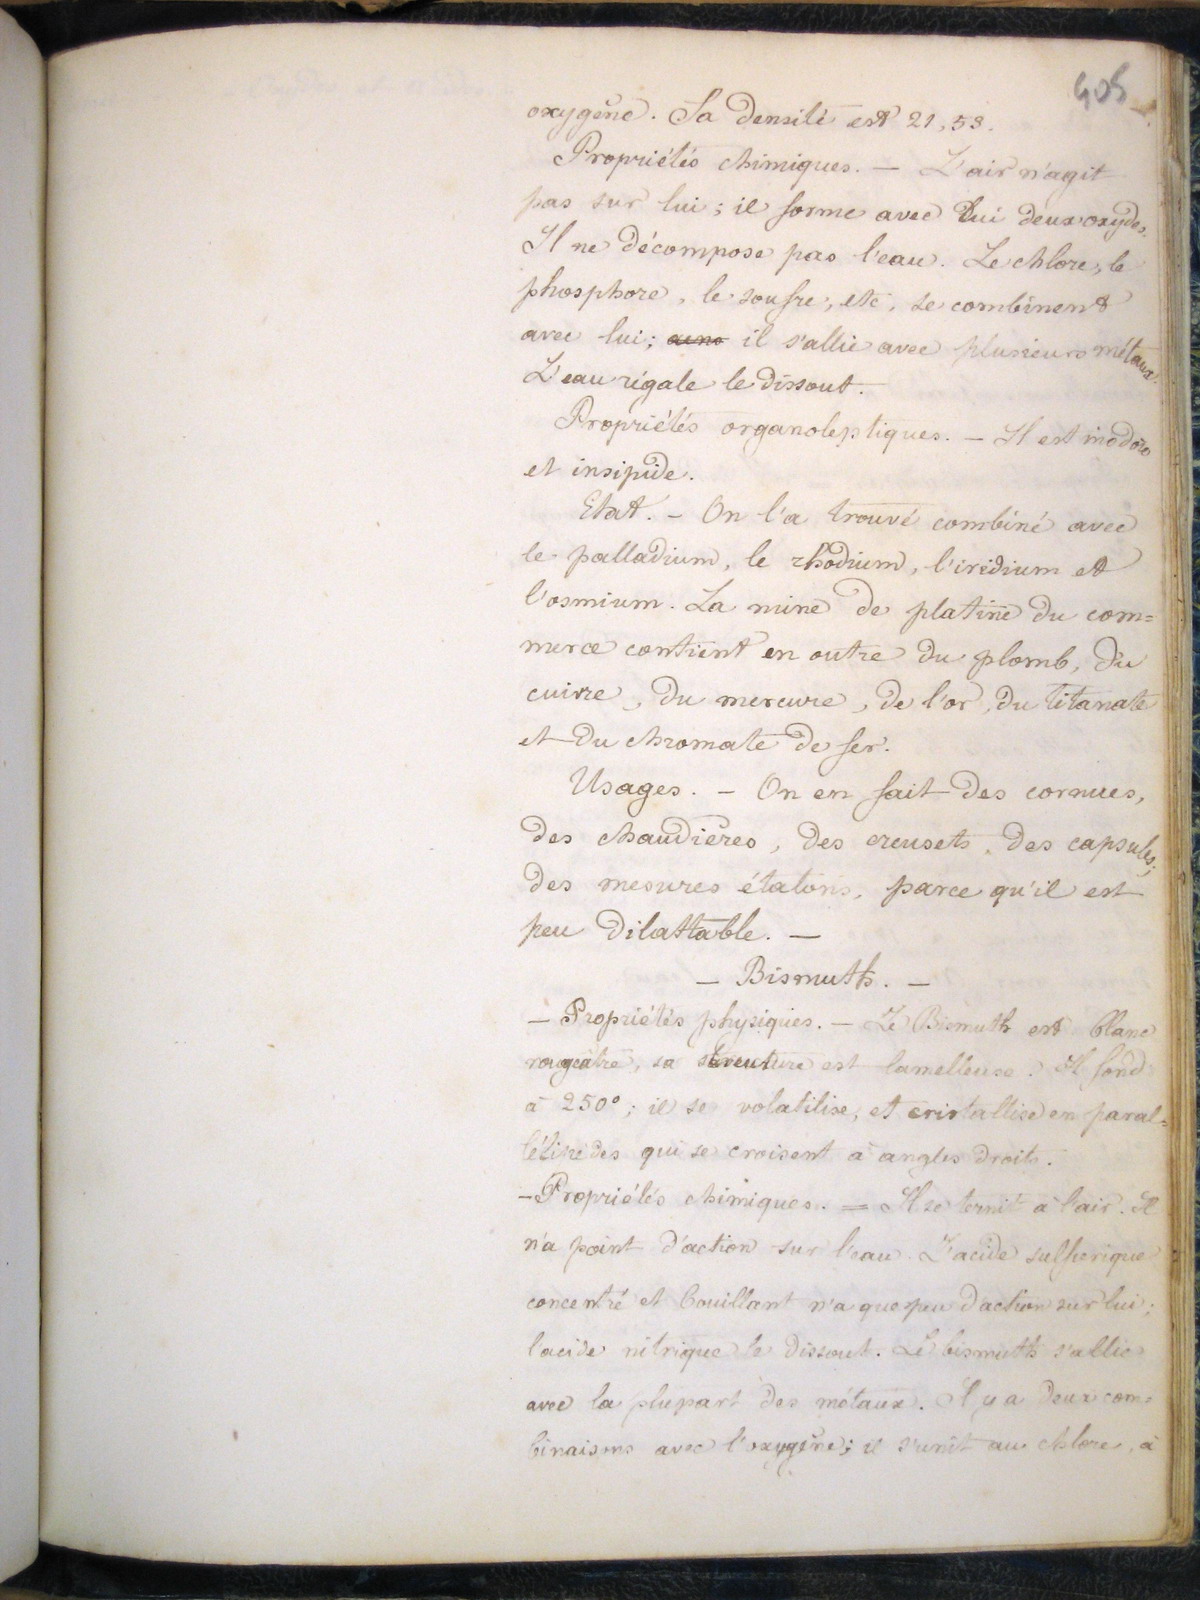 405
oxygène. Sa densité est 21,53.
Propriétés chimiques. — L'air n'agit
pas sur lui; il forme avec lui deux oxydes.
Il ne décompose pas l'eau. Le chlore, le
phosphore, le soufre, etc, se combinent
avec lui; il s'allie avec plusieurs métaux.
L'eau régale le dissout.
Propriétés organoleptiques. — Il est inodore
et insipide.
Etat. — On l'a trouvé combiné avec
le palladium, le rhodium, l'iridium et
l'osmium. La mine de platine du com=
merce contient en outre du plomb, du
cuivre, du mercure, de l'or, du titanate
et du chromate de fer.
Usages. — On en fait des cornues,
des chaudières, des creusets, des capsules;
des mesures étalons, parce qu'il est
peu dilattable. —
— Bismuth. —
— Propriétés physiques. — Le Bismuth est blanc
rougeâtre, sa structure est lamelleuse. Il fond
à 250°; il se volatilise, et cristallise en paral=
lélipèdes qui se croisent à angles droits.
— Propriétés chimiques. = Il se ternit à l'air. Il
n'a point d'action sur l'eau. L'acide sulfurique
concentré et bouillant n'a que peu d'action sur lui;
l'acide nitrique le dissout. Le bismuth s'allie
avec la plupart des métaux. Il y a deux com=
binaisons avec l'oxygène; il s'unit au chlore, à